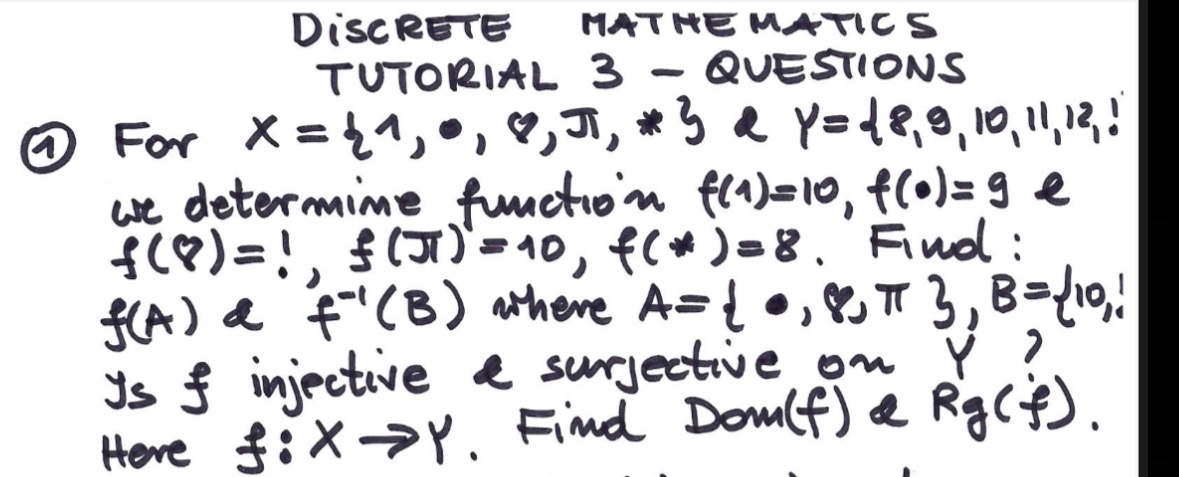 DISCRETE MATHEMATICS
TUTORIAL 3 - QUESTIONS
① For X = {1, •, ♡, π, *} & Y = {8, 9, 10, 11, 12, !
we determine function f(1)=10, f(•)=9 &
f(♡)=!, f(π)=10, f(*)=8. Find:
f(A) & f⁻¹(B) where A={•, ♡, π}, B={10,!
Is f injective & surjective on Y ?
Here f: X → Y. Find Dom(f) & Rg(f).